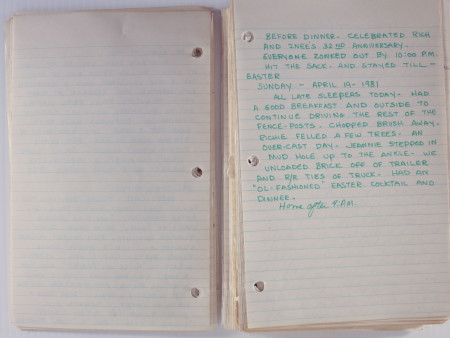 BEFORE DINNER. CELEBRATED RICH
AND INEE'S 32ND ANNIVERSARY.
EVERYONE ZONEED OUT BY 10:00 P.M.
HIT THE SACK. AND STAYED TILL -
EASTER
SUNDAY - APRIL 19 - 1981
ALL LATE SLEEPERS TODAY. HAD
A GOOD BREAKFAST AND OUTSIDE TO
CONTINUE DRIVING THE REST OF THE
FENCE-POSTS. CHOPPED BRUSH AWAY.
RICHIE FELLED A FEW TREES. AN
OVER-CAST DAY. JEANNIE STEPPED IN
MUD HOLE UP TO THE ANKLE. WE
UNLOADED BRICK OFF OF TRAILER
AND R/R TIES OF TRUCK. HAD AN
"OL-FASHIONED" EASTER COCKTAIL AND
DINNER.
Home after P.M.